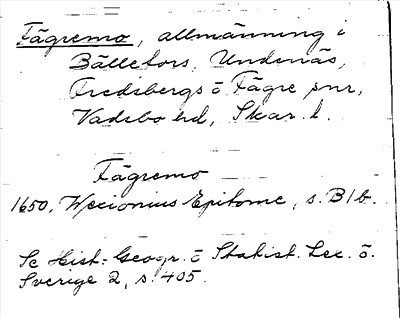 Fägremo, allmänning i
Bällefors, Undenäs,
Fredsbergs o Fägre snr,
Vadsbo hd, Skar. l.
Fägremo
1650. Wexionius Epitome, s. B1b.
Se Hist.-Geogr. o Statist. Lex. ö.
Sverige 2, s. 405.